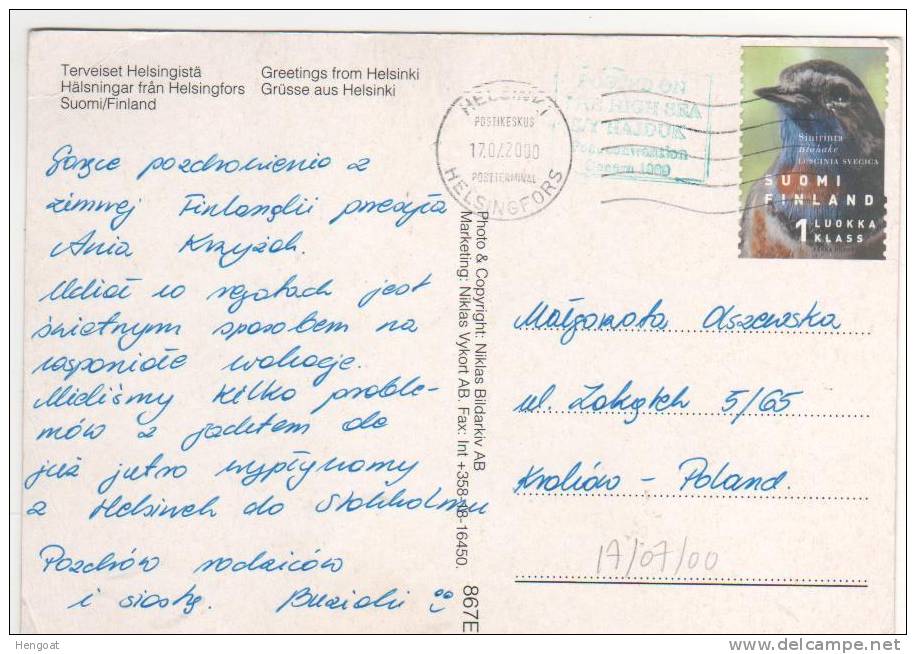 Terveiset Helsingistä
Greetings from Helsinki
Hälsningar från Helsingfors
Grüsse aus Helsinki
Suomi/Finland
HELSINKI
POSTIKESKUS
17.07.2000
POSTTERMINAL
HELSINGFORS
POSTED ON
THE HIGH SEA
S/Y
Sinirinta
Blåhake
LUSCINIA SVECICA
SUOMI
FINLAND
1 LUOKKA
KLASS
Gorące pozdrowienia z
zimnej Finlandii przesyła
Ania
Udział w regatach jest
świetnym sposobem na
wspaniałe wakacje.
Mieliśmy kilka proble-
mów z jachtem ale
już jutro wypływamy
z Helsinek do Stokholmu
Pozdrów rodziców
i siostrę. Buziaki
Photo & Copyright: Niklas Bildarkiv AB
Marketing: Niklas Vykort AB. Fax: Int +358-18-16450.
867E
Małgorzata Olszewska
ul. 5/65
Kraków - Poland.
17/07/00
Hengoat
delcampe.net